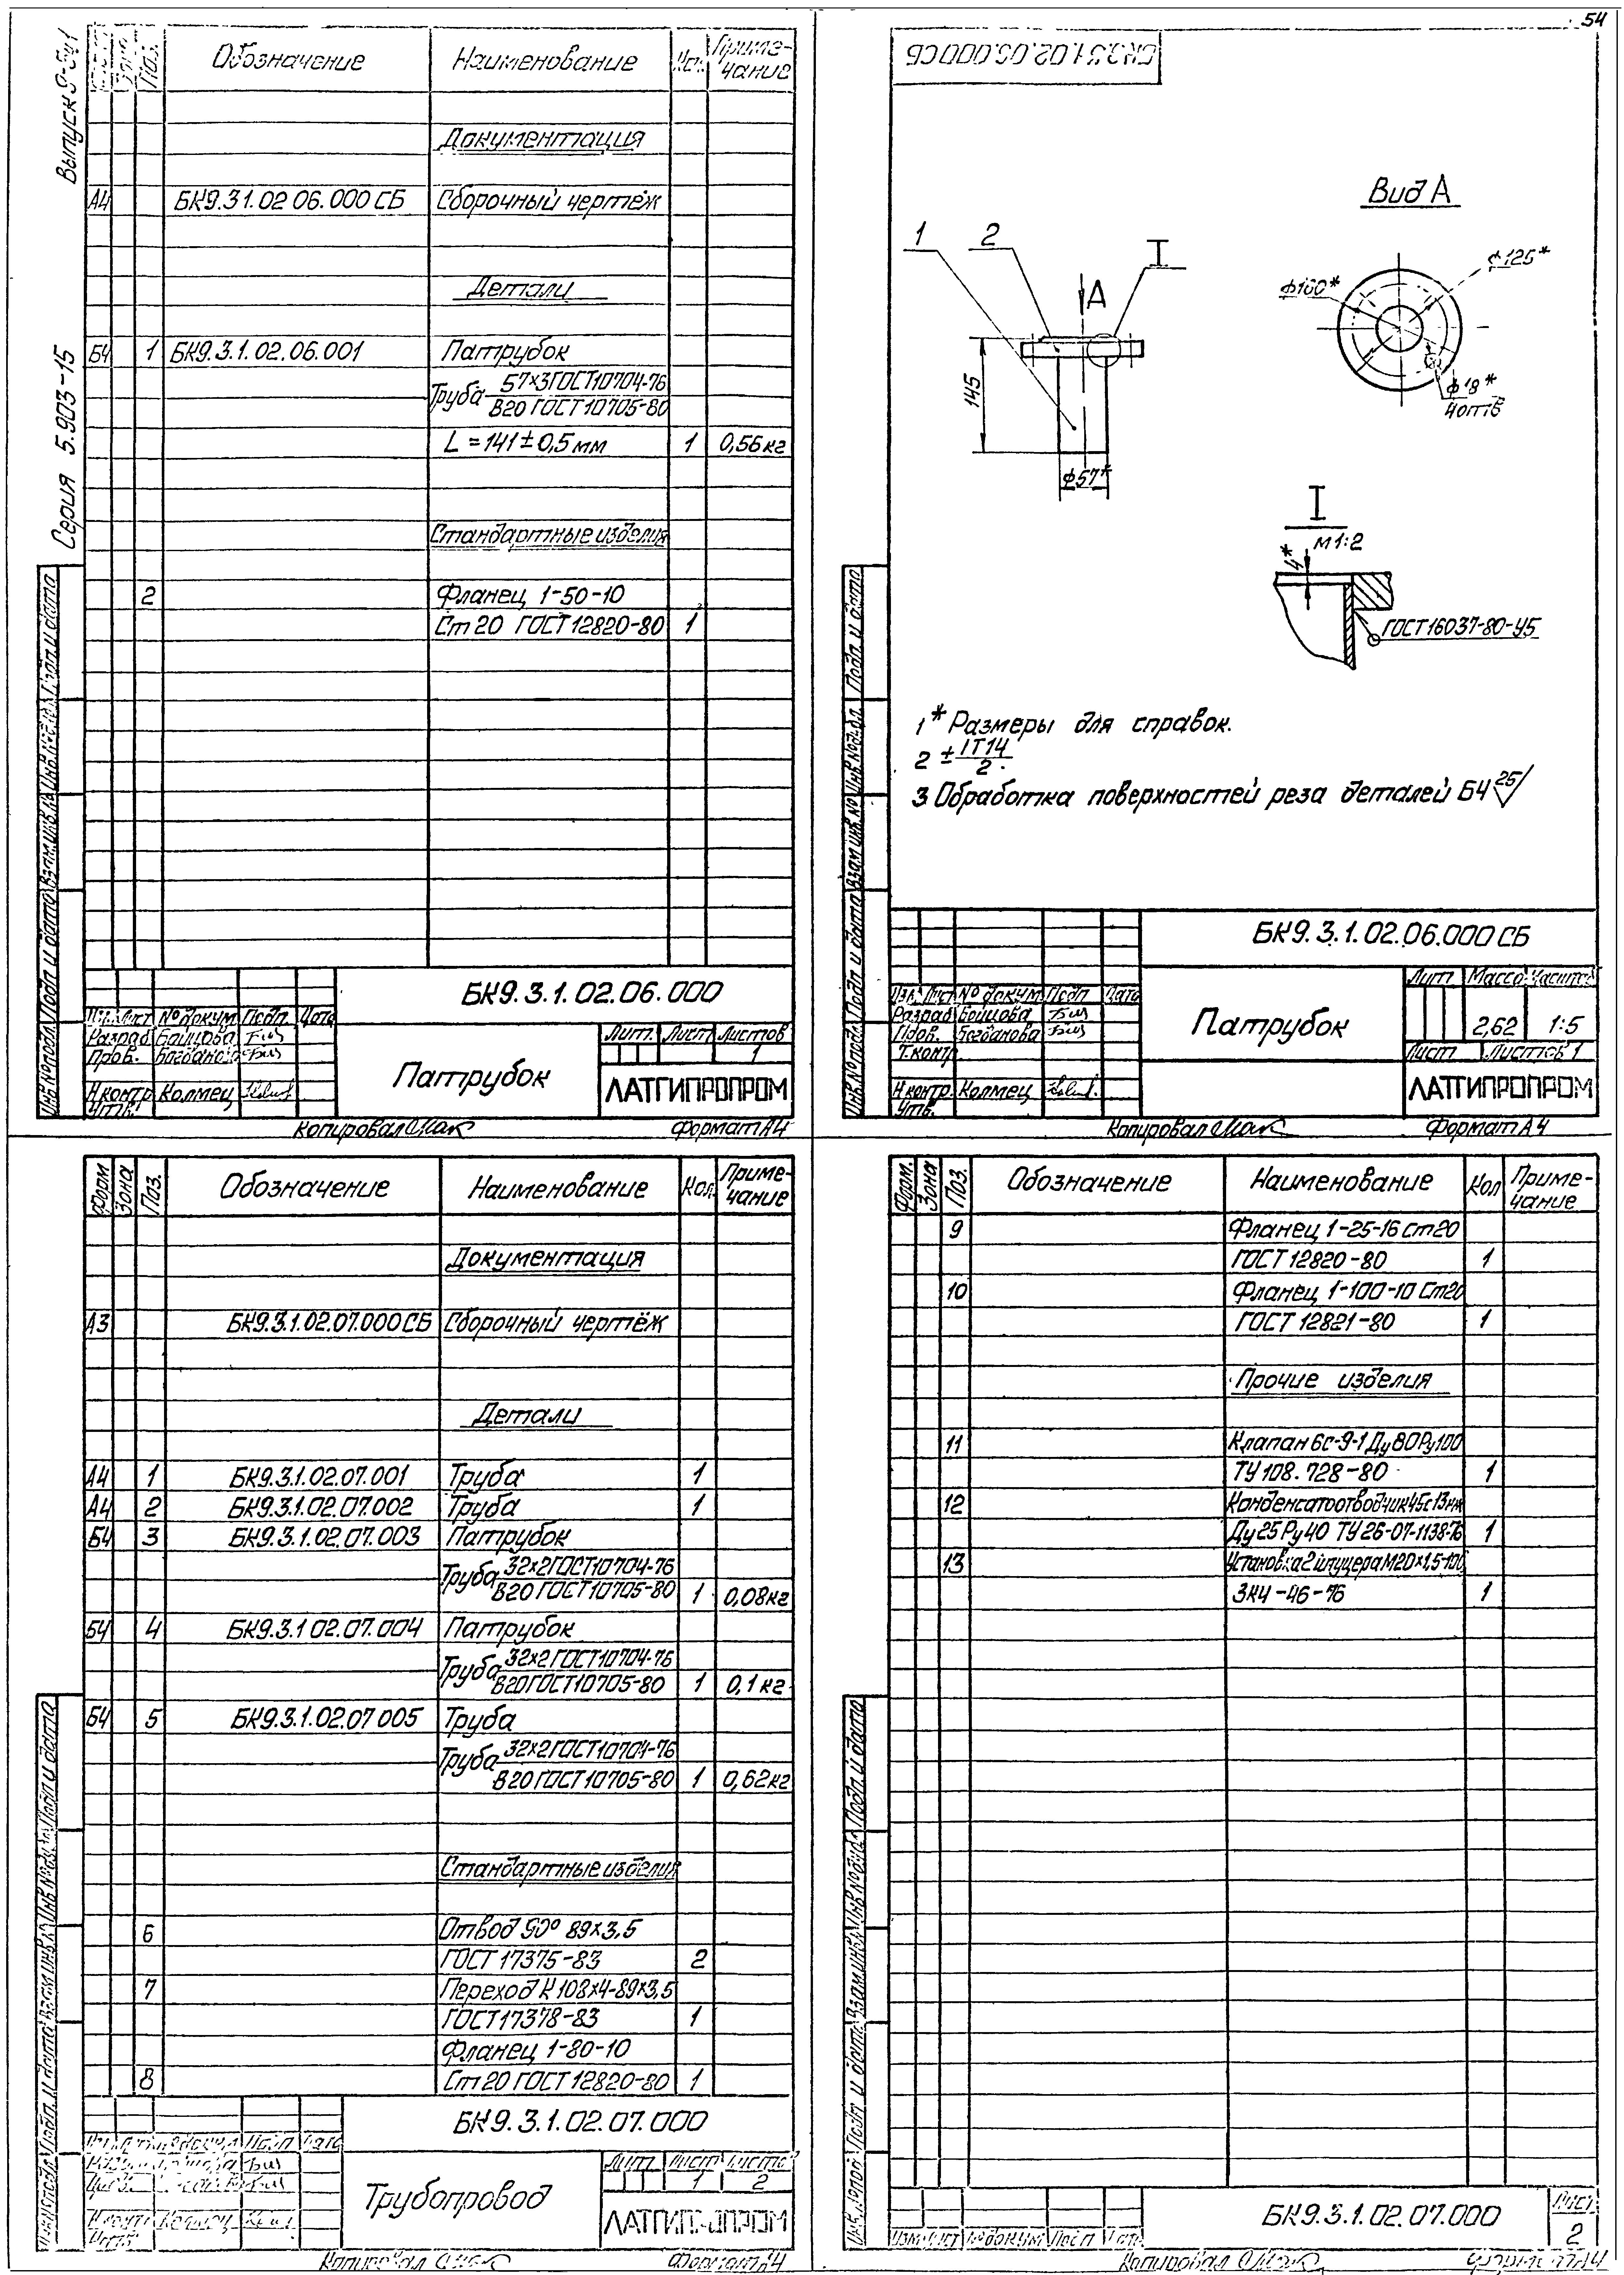 54
Выпуск 9-3ч1
Серия 5.903-15
Поз. Обозначение Наименование Кол. Приме-
чание
Документация
А4 БК9.31.02 06.000 СБ Сборочный чертёж
Детали
Б4 1 БК9.3.1.02.06.001 Патрубок
Труба 57×3 ГОСТ 10704-76
В20 ГОСТ 10705-80
L = 141 ± 0,5 мм 1 0,56 кг
Стандартные изделия
2 Фланец 1-50-10
Ст 20 ГОСТ 12820-80 1
Инв.№ подл. Подп и дата Взам.инв.№ Инв.№ дубл. Подп. и дата
БК9.3.1.02.06.000
Изм. Лист № докум. Подп. Дата
Разраб Бойцова
Пров. Богданова
Н.контр. Колмец
Утв.
Патрубок
Лит. Лист Листов
1
ЛАТГИПРОПРОМ
Копировал Формат А4
БК9.3.1.02.06.000 СБ
Вид А
1 2 I
А
ф160*
ф125*
ф18*
4отв
145
ф57*
I
М1:2
4*
ГОСТ 16037-80-У5
1 * Размеры для справок.
2 ± IT14
2.
3 Обработка поверхностей реза деталей БЧ 25
Инв.№ подл. Подп и дата Взам инв.№ Инв.№ дубл. Подп. и дата
БК9.3.1.02.06.000 СБ
Изм. Лист № докум. Подп Дата
Разраб Бойцова
Пров. Богданова
Т.контр
Н.контр. Колмец
Утв.
Патрубок
Лит Масса Масштаб
2,62 1:5
Лист Листов 1
ЛАТГИПРОПРОМ
Копировал Формат А4
Форм Зона Поз. Обозначение Наименование Кол. Приме-
чание
Документация
А3 БК9.3.1.02.07.000 СБ Сборочный чертёж
Детали
А4 1 БК9.3.1.02.07.001 Труба 1
А4 2 БК9.3.1.02.07.002 Труба 1
Б4 3 БК9.3.1.02.07.003 Патрубок
Труба 32×2 ГОСТ 10704-76
В20 ГОСТ 10705-80 1 0,08кг
Б4 4 БК9.3.1 02.07.004 Патрубок
Труба 32×2 ГОСТ 10704-76
В20 ГОСТ 10705-80 1 0,1 кг
Б4 5 БК9.3.1.02.07 005 Труба
Труба 32×2 ГОСТ 10704-76
В20 ГОСТ 10705-80 1 0,62кг
Стандартные изделия
6 Отвод 90° 89×3,5
ГОСТ 17375-83 2
7 Переход К 108×4-89×3,5
ГОСТ 17378-83 1
Фланец 1-80-10
8 Ст 20 ГОСТ 12820-80 1
БК9.3.1.02.07.000
Трубопровод
Лит Лист Листов
1 2
ЛАТГИПРОПРОМ
Копировал Формат А4
Форм. Зона Поз. Обозначение Наименование Кол Приме-
чание
9 Фланец 1-25-16 Ст20
ГОСТ 12820-80 1
10 Фланец 1-100-10 Ст20
ГОСТ 12821-80 1
Прочие изделия
11 Клапан 6с-9-1 Ду80Ру100
ТУ 108.728-80 1
12 Конденсатоотводчик 45с13нж
Ду 25 Ру 40 ТУ 26-07-1138-76 1
13 Установка 2 штуцера М20×1,5-100
ЗК4-46-76 1
БК9.3.1.02.07.000
Лист
2
Копировал Формат А4